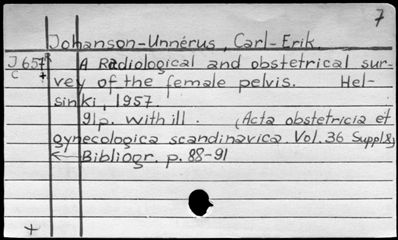 7
Johanson-Unnérus, Carl-Erik.
J 657 A Radiological and obstetrical sur-
C + vey of the female pelvis. Hel-
sinki, 1957.
91p. with ill. (Acta obstetricia et
gynecologica scandinavica. Vol.36 Suppl.8)
Bibliogr. p. 88-91
+